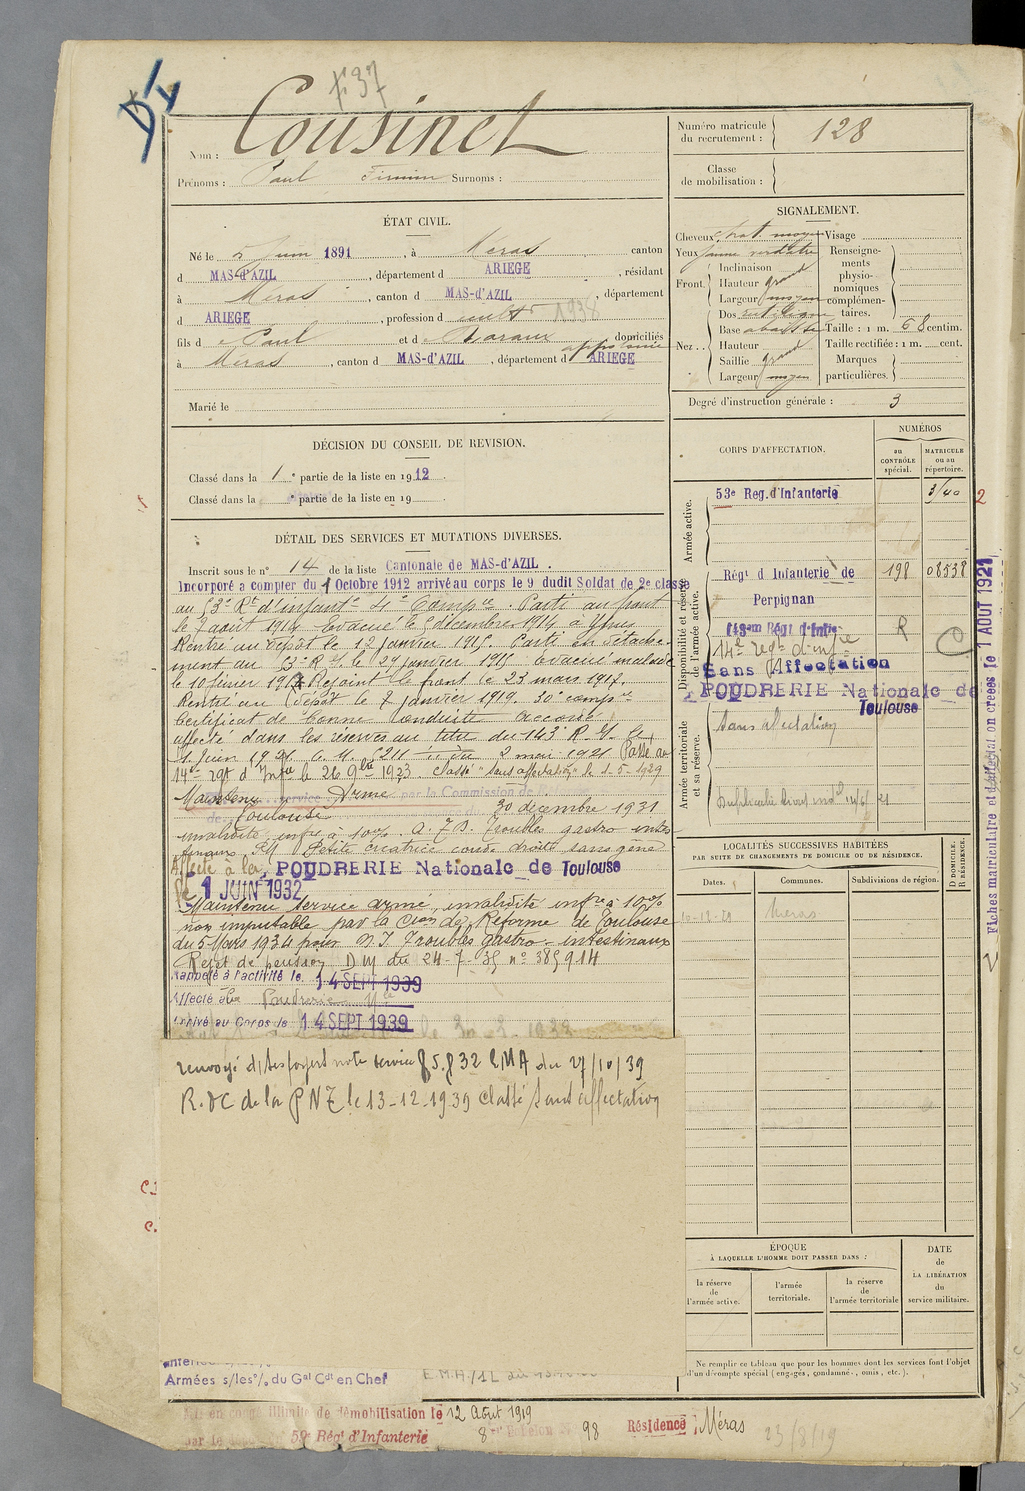 f° 37
Nom : Cousinet
Prénoms : Paul Firmin Surnoms :
ÉTAT CIVIL.
Né le 5 Juin 1891, à Méras canton
d MAS-d'AZIL, département d ARIEGE, résidant
à Méras, canton d MAS-d'AZIL, département
d ARIEGE, profession de cultr 1938
fils de Paul et de domiciliés
à Méras, canton d MAS-d'AZIL, département d ARIEGE
Marié le
DÉCISION DU CONSEIL DE REVISION.
Classé dans la 1e partie de la liste en 1912.
Classé dans la e partie de la liste en 19
DÉTAIL DES SERVICES ET MUTATIONS DIVERSES.
Inscrit sous le n° 14 de la liste Cantonale de MAS-d'AZIL.
Incorporé a compter du 1 Octobre 1912 arrivé au corps le 9 dudit Soldat de 2e classe
au 53e Rt d'infante 4e Compie. Parti au front
le 7 août 1914 Evacué le 5 décembre 1914 à Ypres
Rentré au dépôt le 12 janvier 1915. Parti en détache-
ment au 53e R.I. le 29 janvier 1915 Evacué malade
le 10 février 191 Rejoint le front le 23 mars 1917.
Rentré au dépôt le 7 janvier 1919. 30e compie
Certificat de bonne conduite accordé
affecté dans les réserves au titre du 143e R.I. le
1 juin 1921 C.M. du 2 mai 1921 Passé au
14e régt d'Infie le 26 9bre 1923 Classé "sans affectation" le 1-5-1929
Maintenu service Armé par la Commission de
de Toulouse du 30 décembre 1931
invalidité infre à 10%. Troubles gastro intes
Petite cicatrice coude droit sans gêne
Affecté à la POUDRERIE Nationale de Toulouse
le 1 JUIN 1932
Maintenu service armé, invalidité infre à 10%
non imputable par la Cion de Réforme de Toulouse
du 5 Mars 1934 pour N.I. Troubles gastro-intestinaux
Rejet de pension DM du 24-7-35 n° 385914
Rappelé à l'activité le 14 SEPT 1939
Affecté à la Poudrerie Nle
Arrivé au Corps le 14 SEPT 1939
renvoyé ds/ses foyers note service 85.832 EMA du 27/10/39
R.D.C de la PNT le 13-12-1939 Classé sans affectation
Armées s/les % du Gal Cdt en Chef
E.M.A./1L du
Mis en congé illimité de démobilisation le 12 Août 1919
par le 59e Régt d'Infanterie 8e Echelon N° 98 Résidence Méras 23/8/19
Numéro matricule
du recrutement : 128
Classe
de mobilisation :
SIGNALEMENT.
Cheveux chat. moyen
Yeux jaune verdâtre
Front. Inclinaison
Hauteur grand
Largeur moyen
Nez. Dos rectiligne
Base abaissée
Hauteur
Saillie grand
Largeur moyen
Visage
Renseigne-
ments
physio-
nomiques
complémen-
taires.
Taille : 1 m. 68 centim.
Taille rectifiée : 1 m. cent.
Marques
particulières.
Degré d'instruction générale : 3
CORPS D'AFFECTATION.
NUMÉROS
au
CONTRÔLE
spécial.
MATRICULE
ou au
répertoire.
Armée active.
53e Reg. d'Infanterie 3140
Disponibilité et réserve
de l'armée active.
Régt d Infanterie de 198 08538
Perpignan
143em Régt d'Infie R
14e régt d'infie C
Sans Affectation
POUDRERIE Nationale de
Toulouse
Armée territoriale
et sa réserve.
Sans affectation
LOCALITÉS SUCCESSIVES HABITÉES
PAR SUITE DE CHANGEMENTS DE DOMICILE OU DE RÉSIDENCE.
Dates. Communes. Subdivisions de région. D DOMICILE. R RÉSIDENCE.
Méras
ÉPOQUE
À LAQUELLE L'HOMME DOIT PASSER DANS :
la réserve
de
l'armée active.
l'armée
territoriale.
la réserve
de
l'armée territoriale
DATE
de
LA LIBÉRATION
du
service militaire.
Ne remplir ce tableau que pour les hommes dont les services font l'objet
d'un décompte spécial (engagés, condamnés, omis, etc.).
Fiches matriculaire et d'affectation créées le 1 AOUT 1921